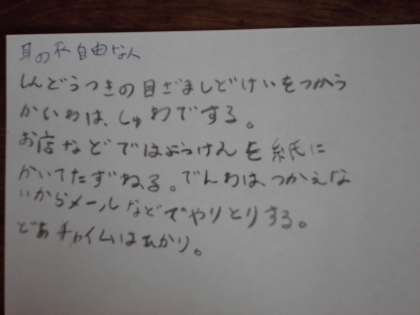 耳の不自由な人
しんどうつきの目ざましどけいをつかう
かいわは、しゅわでする。
お店などではようけんを紙に
かいてたずねる。でんわは、つかえな
いからメールなどでやりとりする。
どあチャイムはあかり。